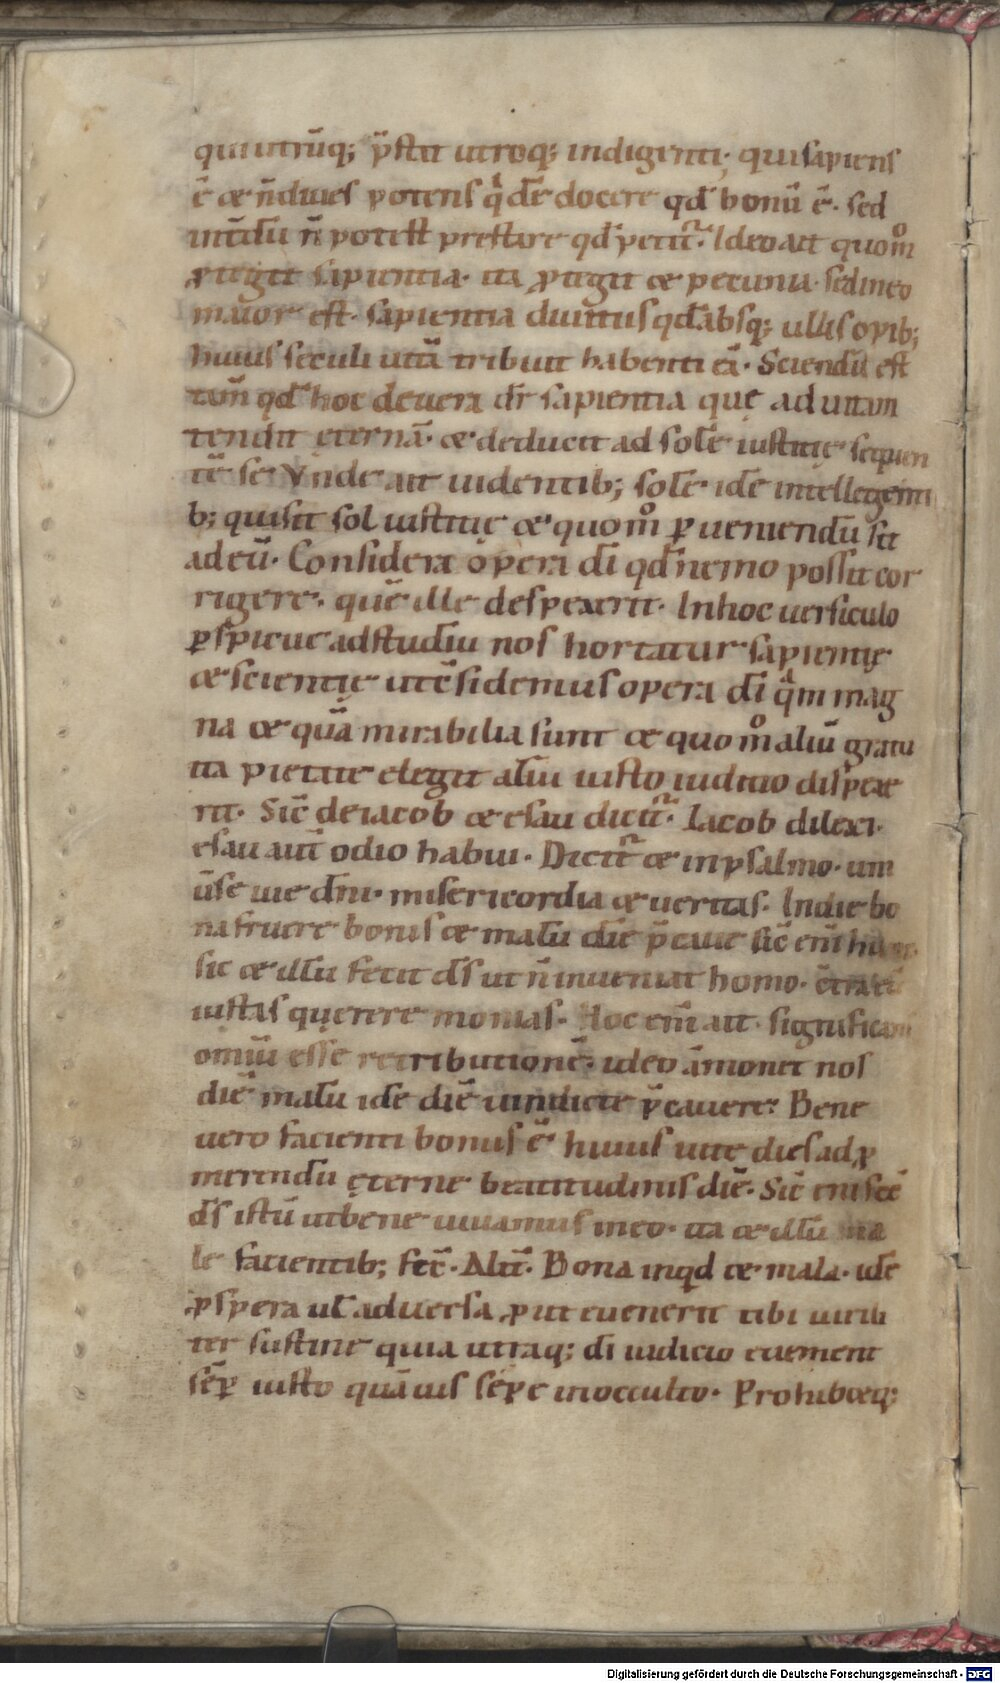 qui utrūq; p̄stat utroq; indigenti; qui sapiens
ē & n̄ diues potens qͥdē docere qd̄ bonū ē. sed
int̄dū n̄ potest prestare qd̄ petit᷑. Ideo ait quom̊
ꝓtegit sapientia. ita ꝓtegit & pecunia. sed in eo
maior est. sapientia diuitiis qd̄ absq; ullis opib;
huius seculi uitā tribuit habenti eā. Sciendū est
tam̄ qd̄ hoc de uera dr̄ sapientia quę ad uitam
tendit ęternā. & deducit ad solē iustitię sequen
tē se. Vnde ait uidentib; solē idē intellegenti
b; quis sit sol iustitię & quom̊ ꝑueniendū sit
ad eū. Considera opera dī qd̄ nemo possit cor
rigere. quē ille despexerit. In hoc uersiculo
ꝑspicue ad studiū nos hortatur sapientię
& scientię ut c̄sideremus opera dī qͣm mag
na & quā mirabilia sunt & quom̊ aliū gratu
ita pietate elegit aliū iusto iudicio dispexe
rit. Sic̄ de iacob & esau dicit᷑. Iacob dilexi.
esau aut̄ odio habui. Dicit᷑ & in psalmo. um
ūse uie dn̄i. misericordia & ueritas. In die bo
na fruere bonis & malū diē p̄caue sic̄ eni̅
sic & illū fecit ds̄ ut n̄ inueniat homo. c̄tra eū
iustas querere monias. Hoc eni̅ ait. significans
omiū esse retributionē. ideo āmonet nos
diē malū idē diē uindicte p̄cauere. Bene
uero facienti bonus ē huius uite dies ad ꝓ
merendū ęterne beatitudinis diē. Sic̄ eni fec̄
ds̄ istū ut bene uiuamus in eo. ita & illū ma
le facientib; fec̄. Alit̄. Bona inqd & mala. idē
ꝓspera ul̄ aduersa ꝓut euenerit tibi uirili
ter sustine quia utraq; dī iudicio eueniunt
sēꝑ iusto quāuis sepe in occulto. Prohib&q;
Digitalisierung gefördert durch die Deutsche Forschungsgemeinschaft - DFG